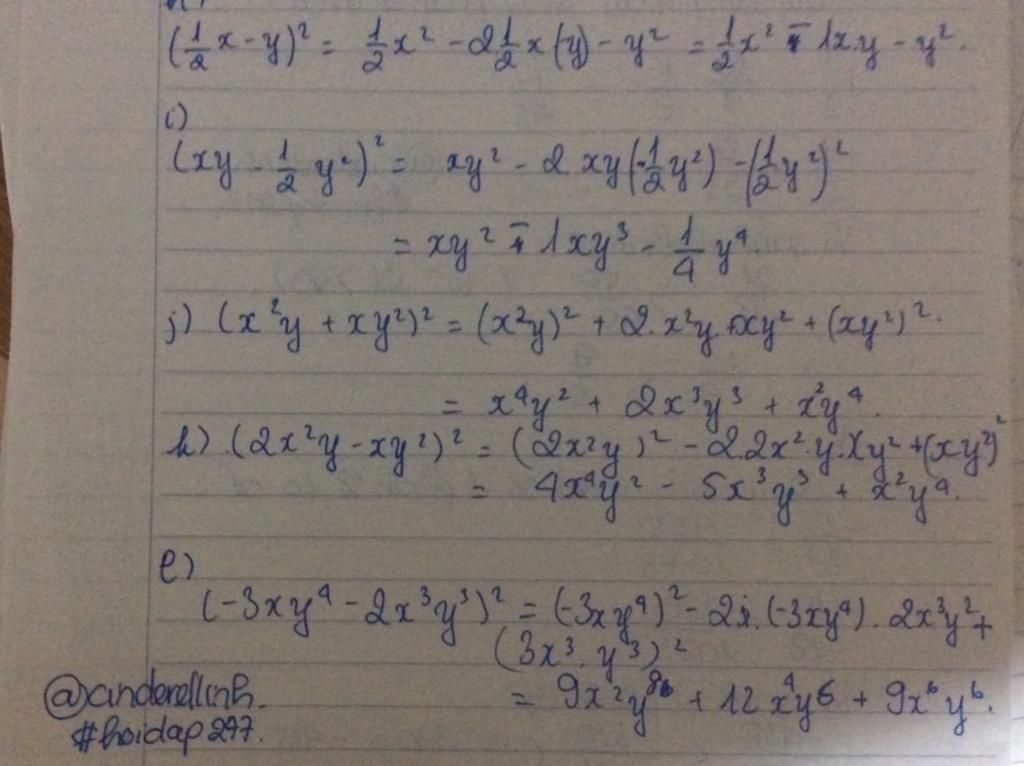 (1/2 x - y)² = 1/2 x² - 2 1/2 x (y) - y² = 1/2 x² - 1xy - y².
i)
(xy - 1/2 y²)² = xy² - 2 xy (-1/2 y²) - (1/2 y²)²
= xy² - 1xy³ - 1/4 y⁴.
j) (x²y + xy²)² = (x²y)² + 2.x²y.xy² + (xy²)².
= x⁴y² + 2x³y³ + x²y⁴.
k) (2x²y - xy²)² = (2x²y)² - 2.2x².y.xy² + (xy²)²
= 4x⁴y² - 5x³y³ + x²y⁴.
l)
(-3xy⁴ - 2x³y³)² = (-3xy⁴)² - 2.(-3xy⁴). 2x³y² +
(3x³.y³)²
= 9x²y⁸ + 12x⁴y⁶ + 9x⁶y⁶.
@cinderellinh.
#hoidap247.